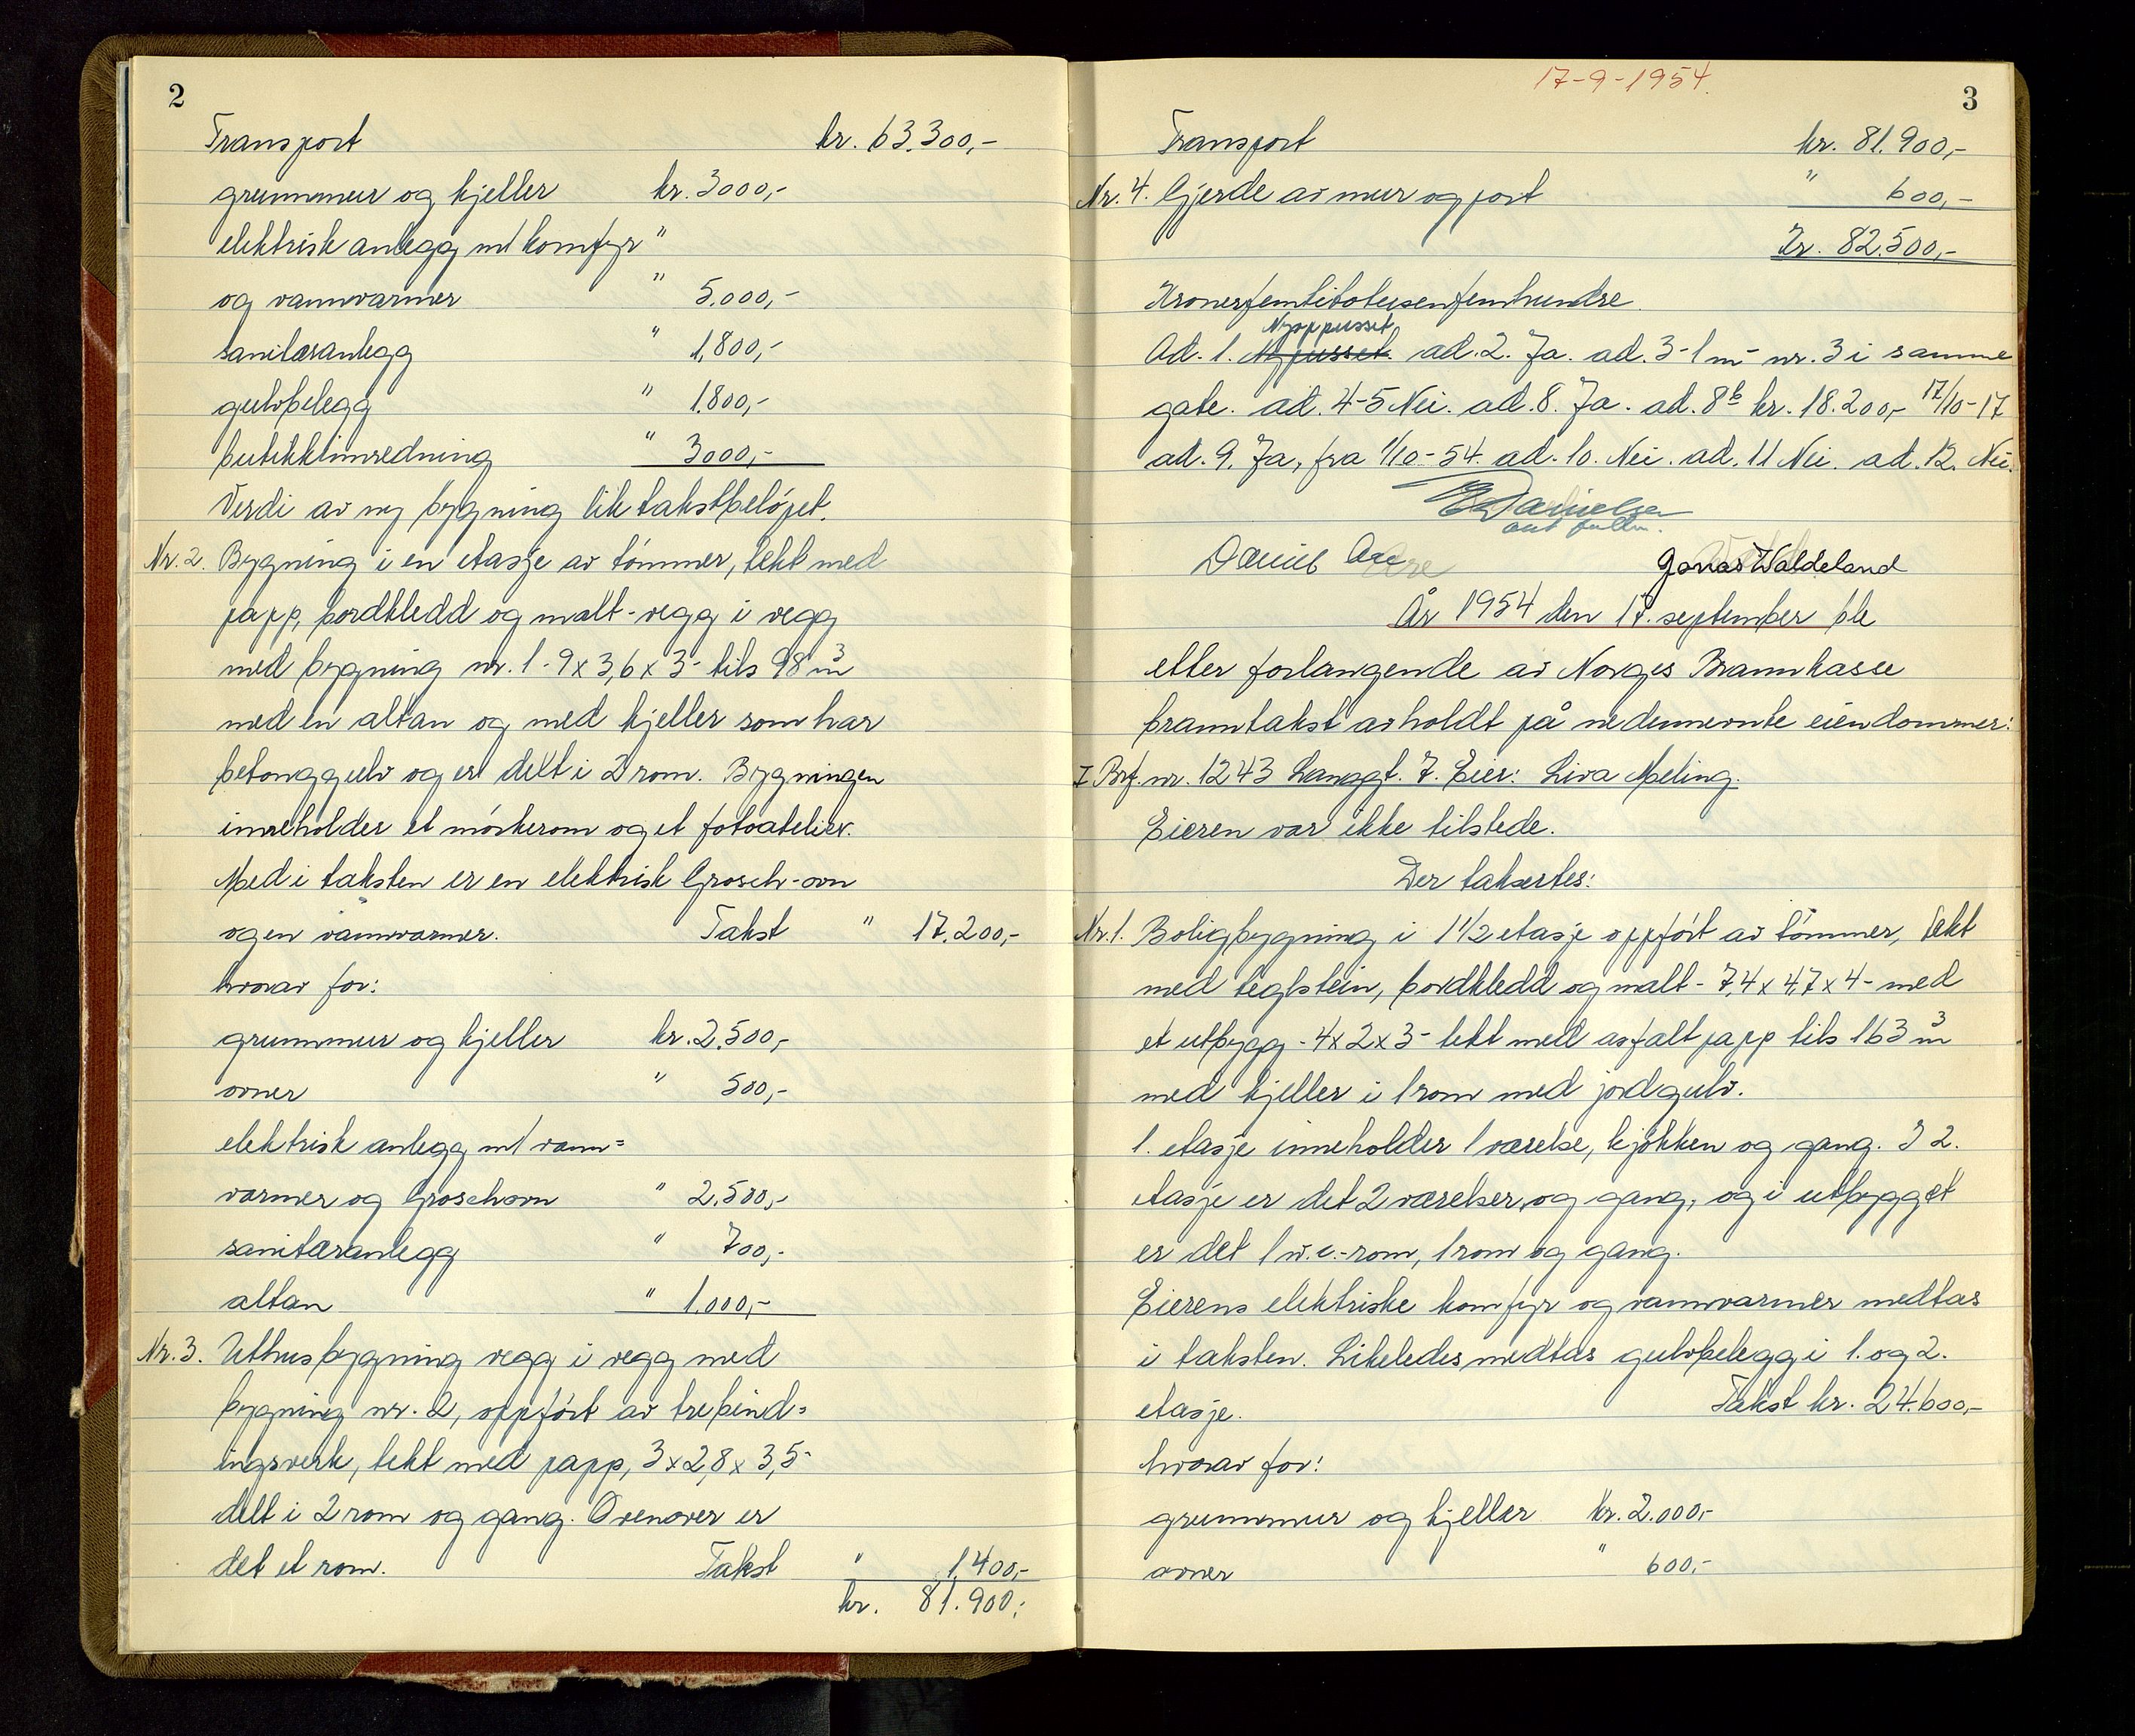 2
Transport kr. 63.300,-
grunnmur og kjeller kr. 3000,-
elektrisk anlegg m/ komfyr "
og vannvarmer " 5.000,-
sanitæranlegg " 1,800,-
gulvbelegg " 1.800,-
butikkinnredning " 3000,-
Verdi av ny bygning lik takstbeløpet.
Nr. 2. Bygning i en etasje av tømmer, tekt med
papp, bordkledd og malt - vegg i vegg
med bygning nr. 1 - 9 x 3,6 x 3 - tils 98 m³
med en altan og med kjeller som har
betonggulv og er delt i 2 rom. Bygningen
inneholder et mørkerom og et fotoatelier.
Med i taksten er en elektrisk Grosch-ovn
og en vannvarmer. Takst " 17.200,-
hvorav for:
grunnmur og kjeller kr. 2.500,-
ovner " 500,-
elektrisk anlegg m/ vann=
varmer og Groschovn " 2.500,-
sanitæranlegg " 700,-
altan " 1.000,-
Nr. 3. Uthusbygning vegg i vegg med
bygning nr. 2, oppført av trebind=
ingsverk, tekt med papp, 3 x 2,8 x 3,5-
delt i 2 rom og gang. Ovenover er
det et rom. Takst " 1.400,-
kr. 81.900,-
17-9-1954.
3
Transport kr. 81.900,-
Nr. 4. Gjerde av mur og port " 600,-
Kr. 82.500,-
Kronerfemtitotusenfemhundre
Nyoppusset
Ad. 1. Nypusset. ad. 2. Ja. ad. 3 - 1 m - nr. 3 i samme
gate. ad. 4-5 Nei. ad. 8. Ja. ad. 8b kr. 18.200,- 17/10-17
ad. 9. Ja, fra 1/10-54. ad. 10. Nei. ad. 11 Nei. ad. 12. Nei.
E Danielsen
aut fullm.
Daniel Are Jonas Waldeland
År 1954 den 17. september ble
etter forlangende av Norges Brannkasse
branntakst avholdt på nedennevnte eiendommer:
I Brf. nr. 1243 Langgt. 7. Eier: Liva Meling.
Eieren var ikke tilstede.
Der takertes:
Nr. 1. Boligbygning i 1 1/2 etasje oppført av tømmer, tekt
med teglstein, bordkledd og malt - 7,4 x 4,7 x 4 - med
et utbygg - 4 x 2 x 3 - tekt med asfalt papp tils 163 m³
med kjeller i 1 rom med jordgulv.
1. etasje inneholder 1 værelse, kjøkken og gang. I 2.
etasje er det 2 værelser og gang, og i utbygget
er det 1 w.c.-rom, 1 rom og gang.
Eierens elektriske komfyr og vannvarmer medtas
i taksten. Likeledes medtas gulvbelegg i 1. og 2.
etasje. Takst kr. 24.600,-
hvorav for:
grunnmur og kjeller kr. 2.000,-
ovner " 600,-